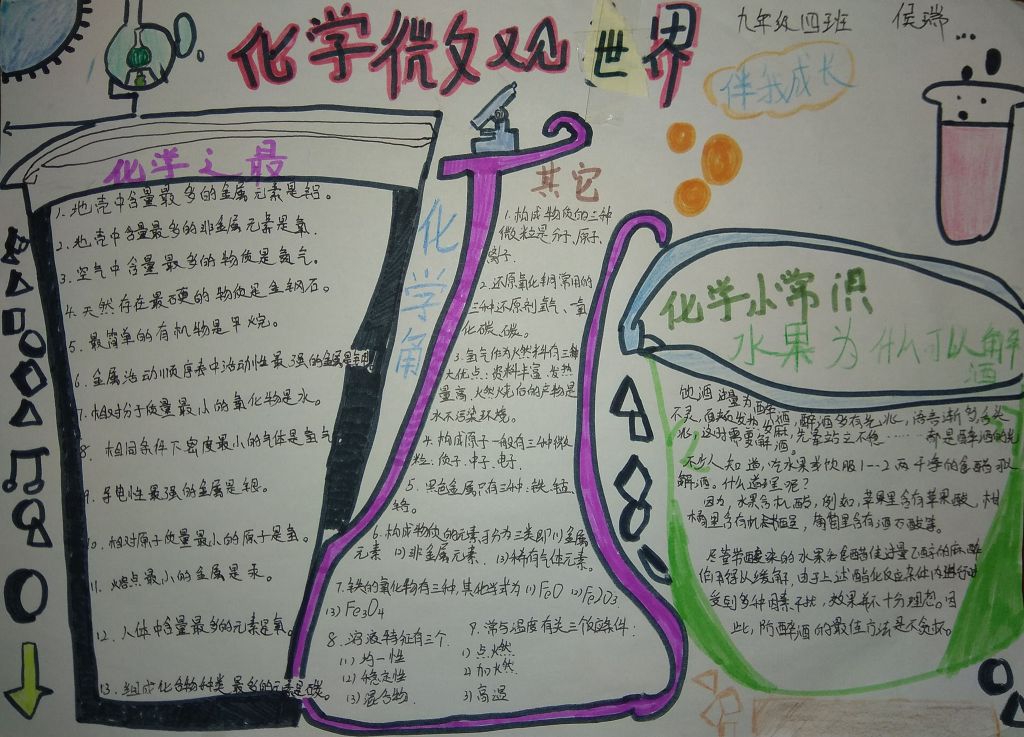 化学微观世界
九年级四班 侯瑞
伴我成长
化学之最
1.地壳中含量最多的金属元素是铝。
2.地壳中含量最多的非金属元素是氧.
3.空气中含量最多的物质是氮气。
4.天然存在最硬的物质是金钢石。
5.最简单的有机物是甲烷。
6.金属活动顺序表中活动性最强的金属是钾
7.相对分子质量最小的氧化物是水。
8.相同条件下密度最小的气体是氢气
9.导电性最强的金属是银。
10.相对原子质量最小的原子是氢。
11.熔点最小的金属是汞。
12.人体中含量最多的元素是氧。
13.组成化合物种类最多的元素是碳。
化学角
其它
1.构成物质的三种
微粒是分子、原子、
离子.
2.还原氧化铜常用的
三种还原剂氢气、一氧
化碳、碳。
3.氢气作为燃料有三
大优点：资料丰富,发热
量高,燃烧后的产物是
水不污染环境。
4.构成原子一般有三种微
粒：质子、中子、电子.
5.黑色金属只有三种：铁、锰、
铬。
6.构成物质的元素可分为三类即(1)金属
元素 (2)非金属元素. (3)稀有气体元素。
7.铁的氧化物有三种,其化学式为(1)FeO (2)Fe2O3.
(3)Fe3O4
8.溶液特征有三个.
(1)均一性
(2)稳定性
(3)混合物
9.常与温度有关三个反应条件：
1)点燃
2)加热
3)高温
化学小常识
水果为什么可以解
酒
饮酒过量为醉酒,醉酒多有先兆,语言渐多,舌头
不灵,面颊发热发麻,先靠站立不稳……都是醉酒的先
兆,这时需要解酒。
不少人知道,吃水果或饮服1--2两干净的食醋可以
解酒。什么道理呢？
因为,水果含机酸,例如,苹果里含有苹果酸,柑
橘里含有机,葡萄里含有酒石酸等。
尽管带酸味的水果和食醋使过量乙醇的麻醉
作用得以缓解,由于上述酯化反应条件内进行时
受到多种因素干扰,效果并不十分理想。因
此,防醉酒的最佳方法是不贪杯。